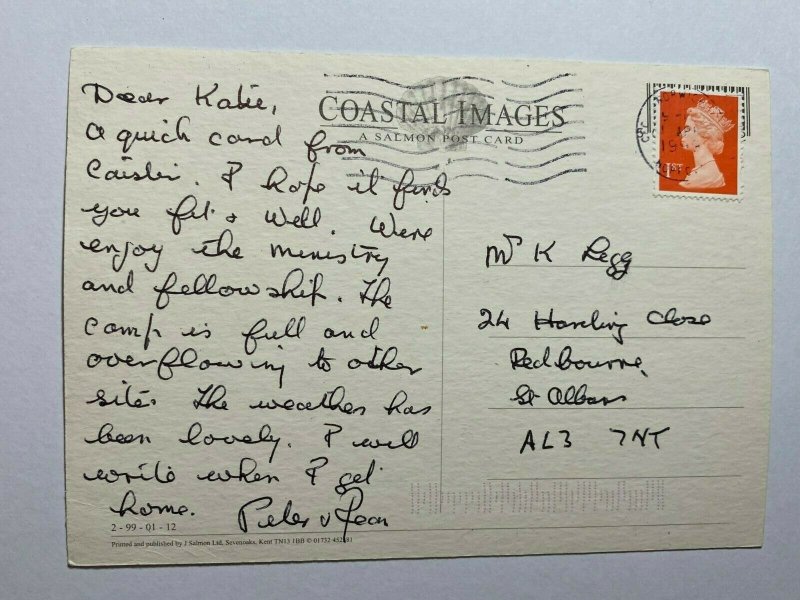 Dear Katie,
a quick card from
Caister. I hope it finds
you fit & well. We're
enjoy the ministry
and fellowship. The
camp is full and
overflowing to other
site. The weather has
been lovely. I will
write when I get
home. Peter & Jean
2 - 99 - 01 - 12
Printed and published by J Salmon Ltd, Sevenoaks, Kent TN13 1BB © 01732 452381
COASTAL IMAGES
A SALMON POST CARD
1ST
K Legg
24 Harding Close
Redbourne,
St Albans
AL3 7NT